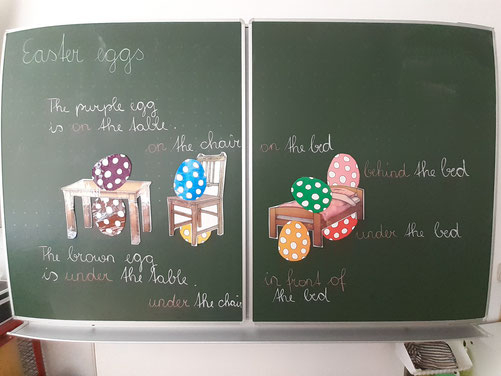 Easter eggs
The purple egg
is on the table.
on the chair
The brown egg
is under the table.
under the chair
on the bed
behind the bed
under the bed
in front of
the bed